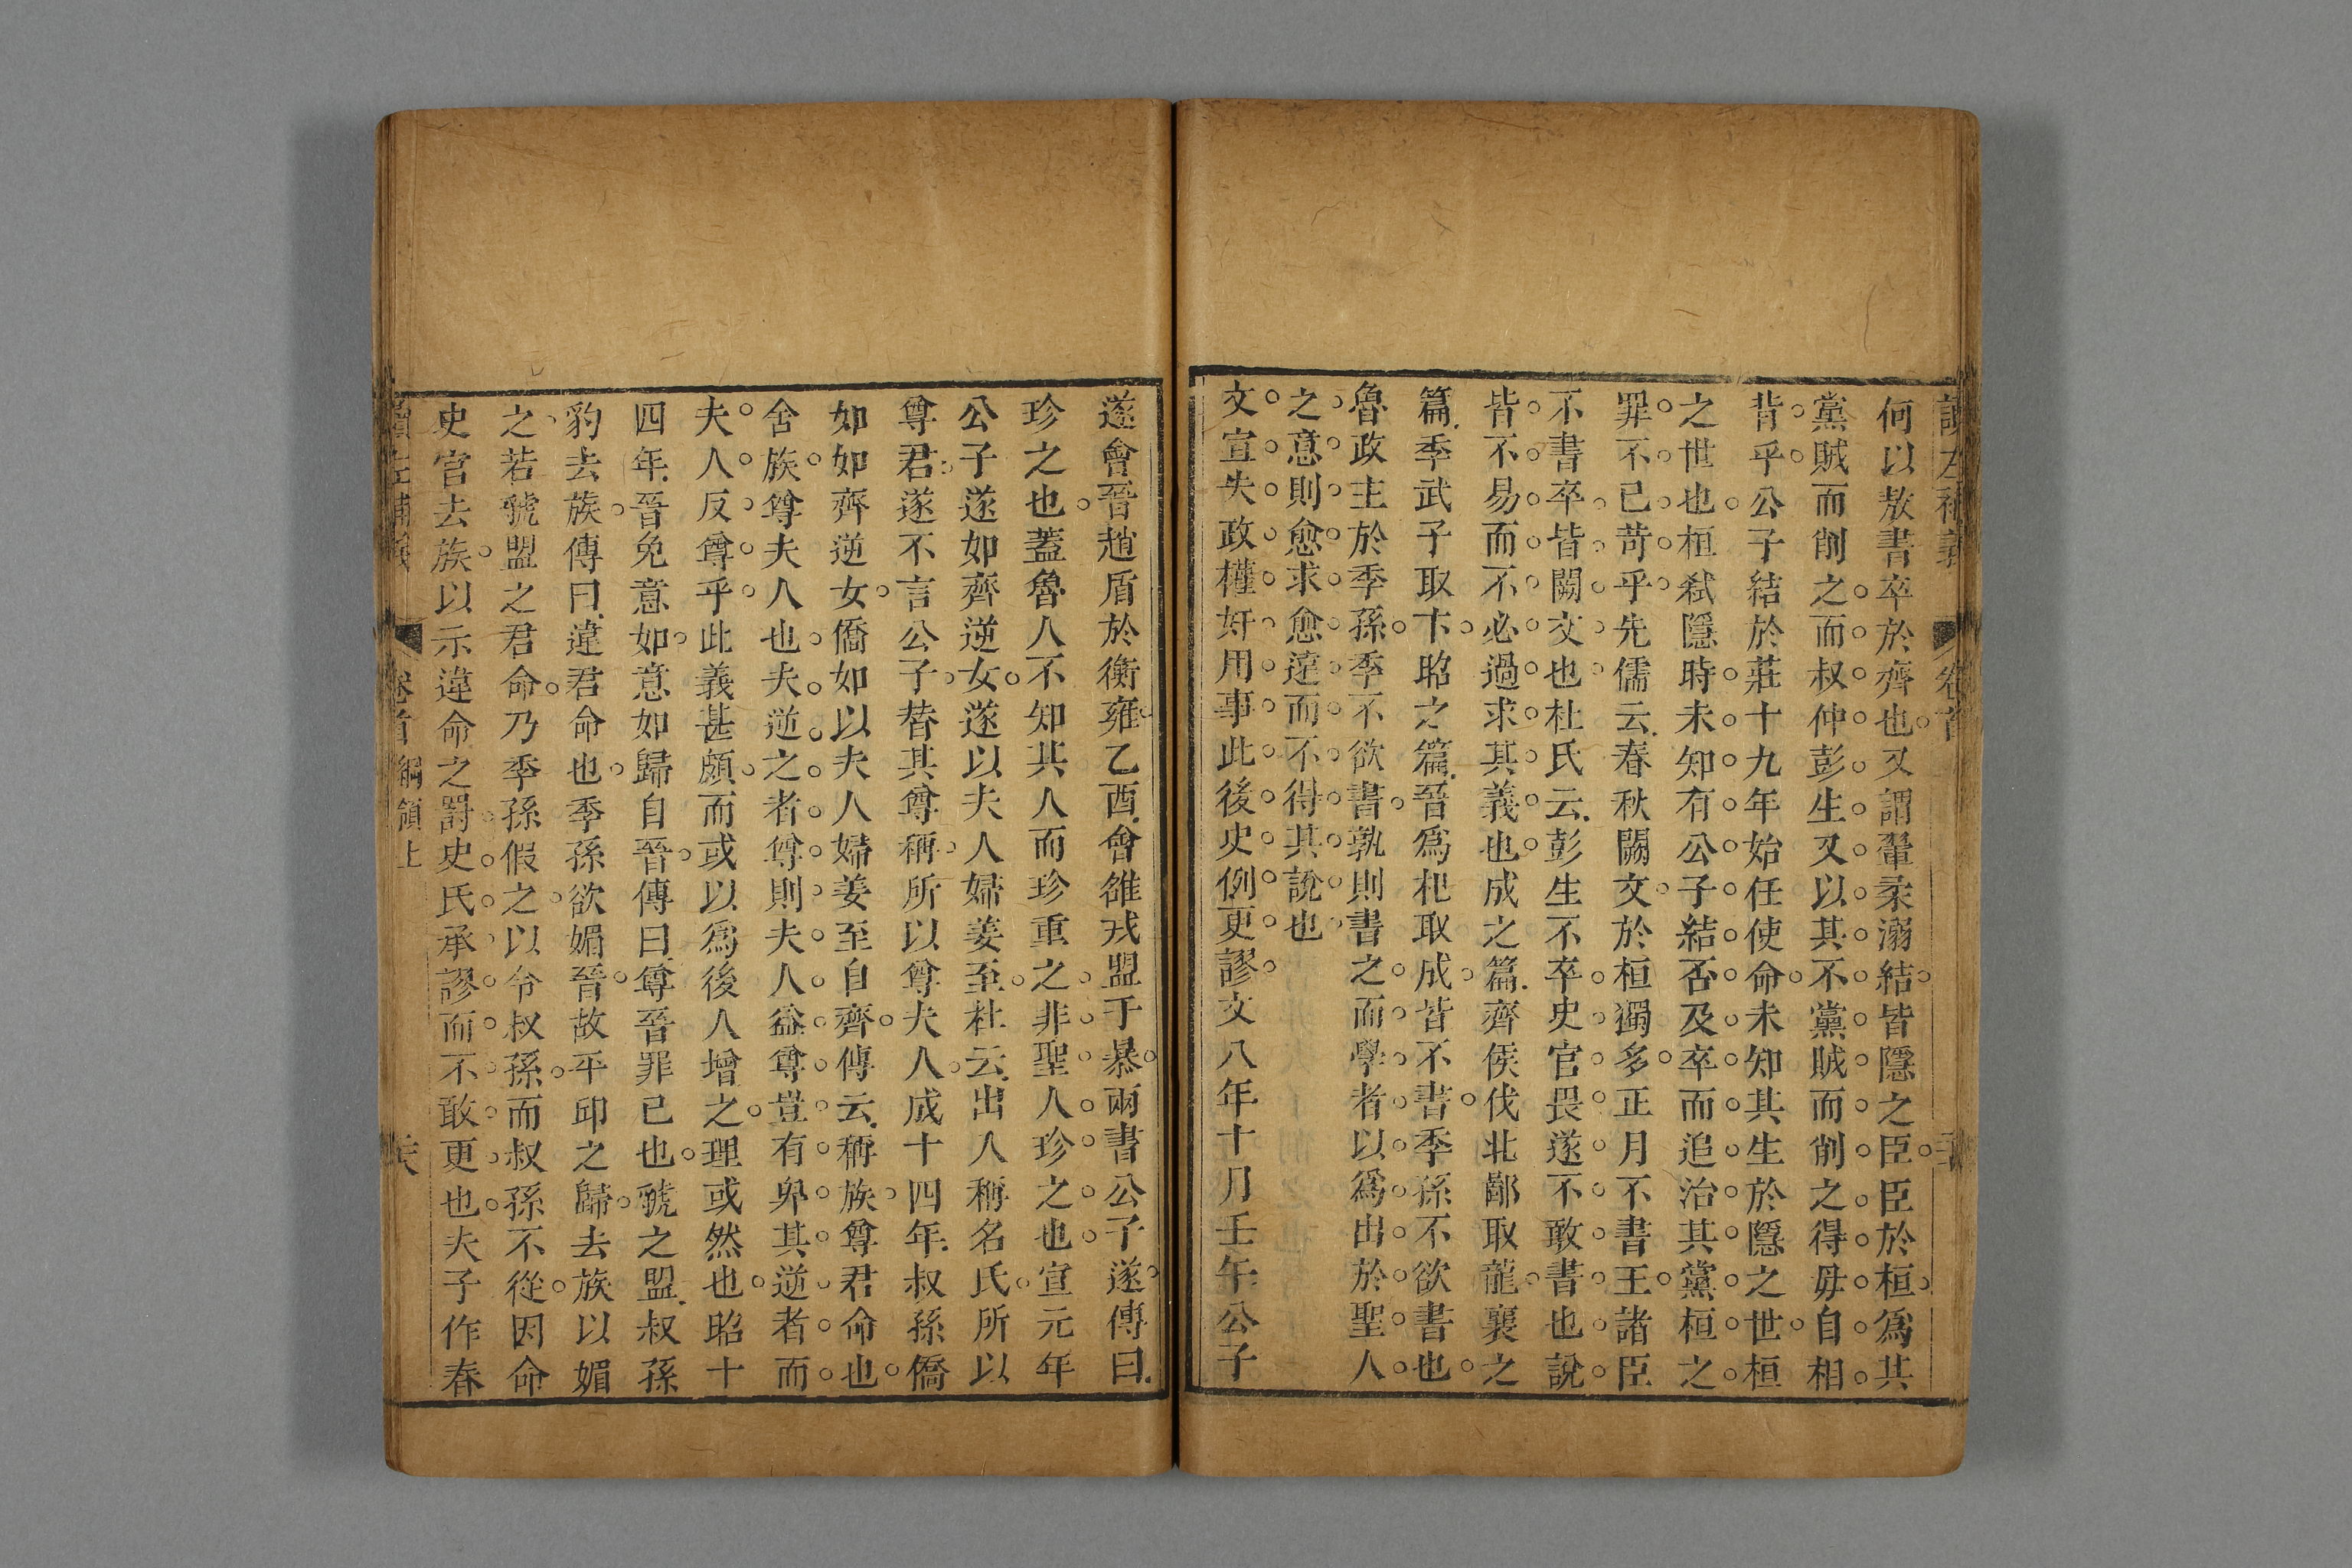 何以敖書卒於齊也又謂翬柔溺結皆隱之臣臣於桓爲其
黨賊而削之而叔仲彭生又以其不黨賊而削之得毋自相
背乎公子結於莊十九年始任使命未知其生於隱之世桓
之世也桓弒隱時未知有公子結否及卒而追治其黨桓之
罪不已苛乎先儒云春秋闕文於桓獨多正月不書王諸臣
不書卒皆闕文也杜氏云彭生不卒史官畏遂不敢書也說
皆不易而不必過求其義也成之篇齊侯伐北鄙取龍襄之
篇季武子取卞昭之篇晉爲杞取成皆不書季孫不欲書也
魯政主於季孫季不欲書孰則書之而學者以爲出於聖人
之意則愈求愈遠而不得其說也
文宣失政權奸用事此後史例更謬文八年十月壬午公子
遂會晉趙盾於衡雍乙酉會雒戎盟于暴兩書公子遂傳曰
珍之也蓋魯人不知其人而珍重之非聖人珍之也宣元年
公子遂如齊逆女遂以夫人婦姜至杜云出人稱名氏所以
尊君遂不言公子替其尊稱所以尊夫人成十四年叔孫僑
如如齊逆女僑如以夫人婦姜至自齊傳云稱族尊君命也
舍族尊夫人也夫逆之者尊則夫人益尊豈有卑其逆者而
夫人反尊乎此義甚頗而或以爲後人增之理或然也昭十
四年晉免意如意如歸自晉傳曰尊晉罪己也虢之盟叔孫
豹去族傳曰違君命也季孫欲媚晉故平邱之歸去族以媚
之若虢盟之君命乃季孫假之以令叔孫而叔孫不從因命
史官去族以示違命之罰史氏承謬而不敢更也夫子作春
讀左補義 卷首 綱領上